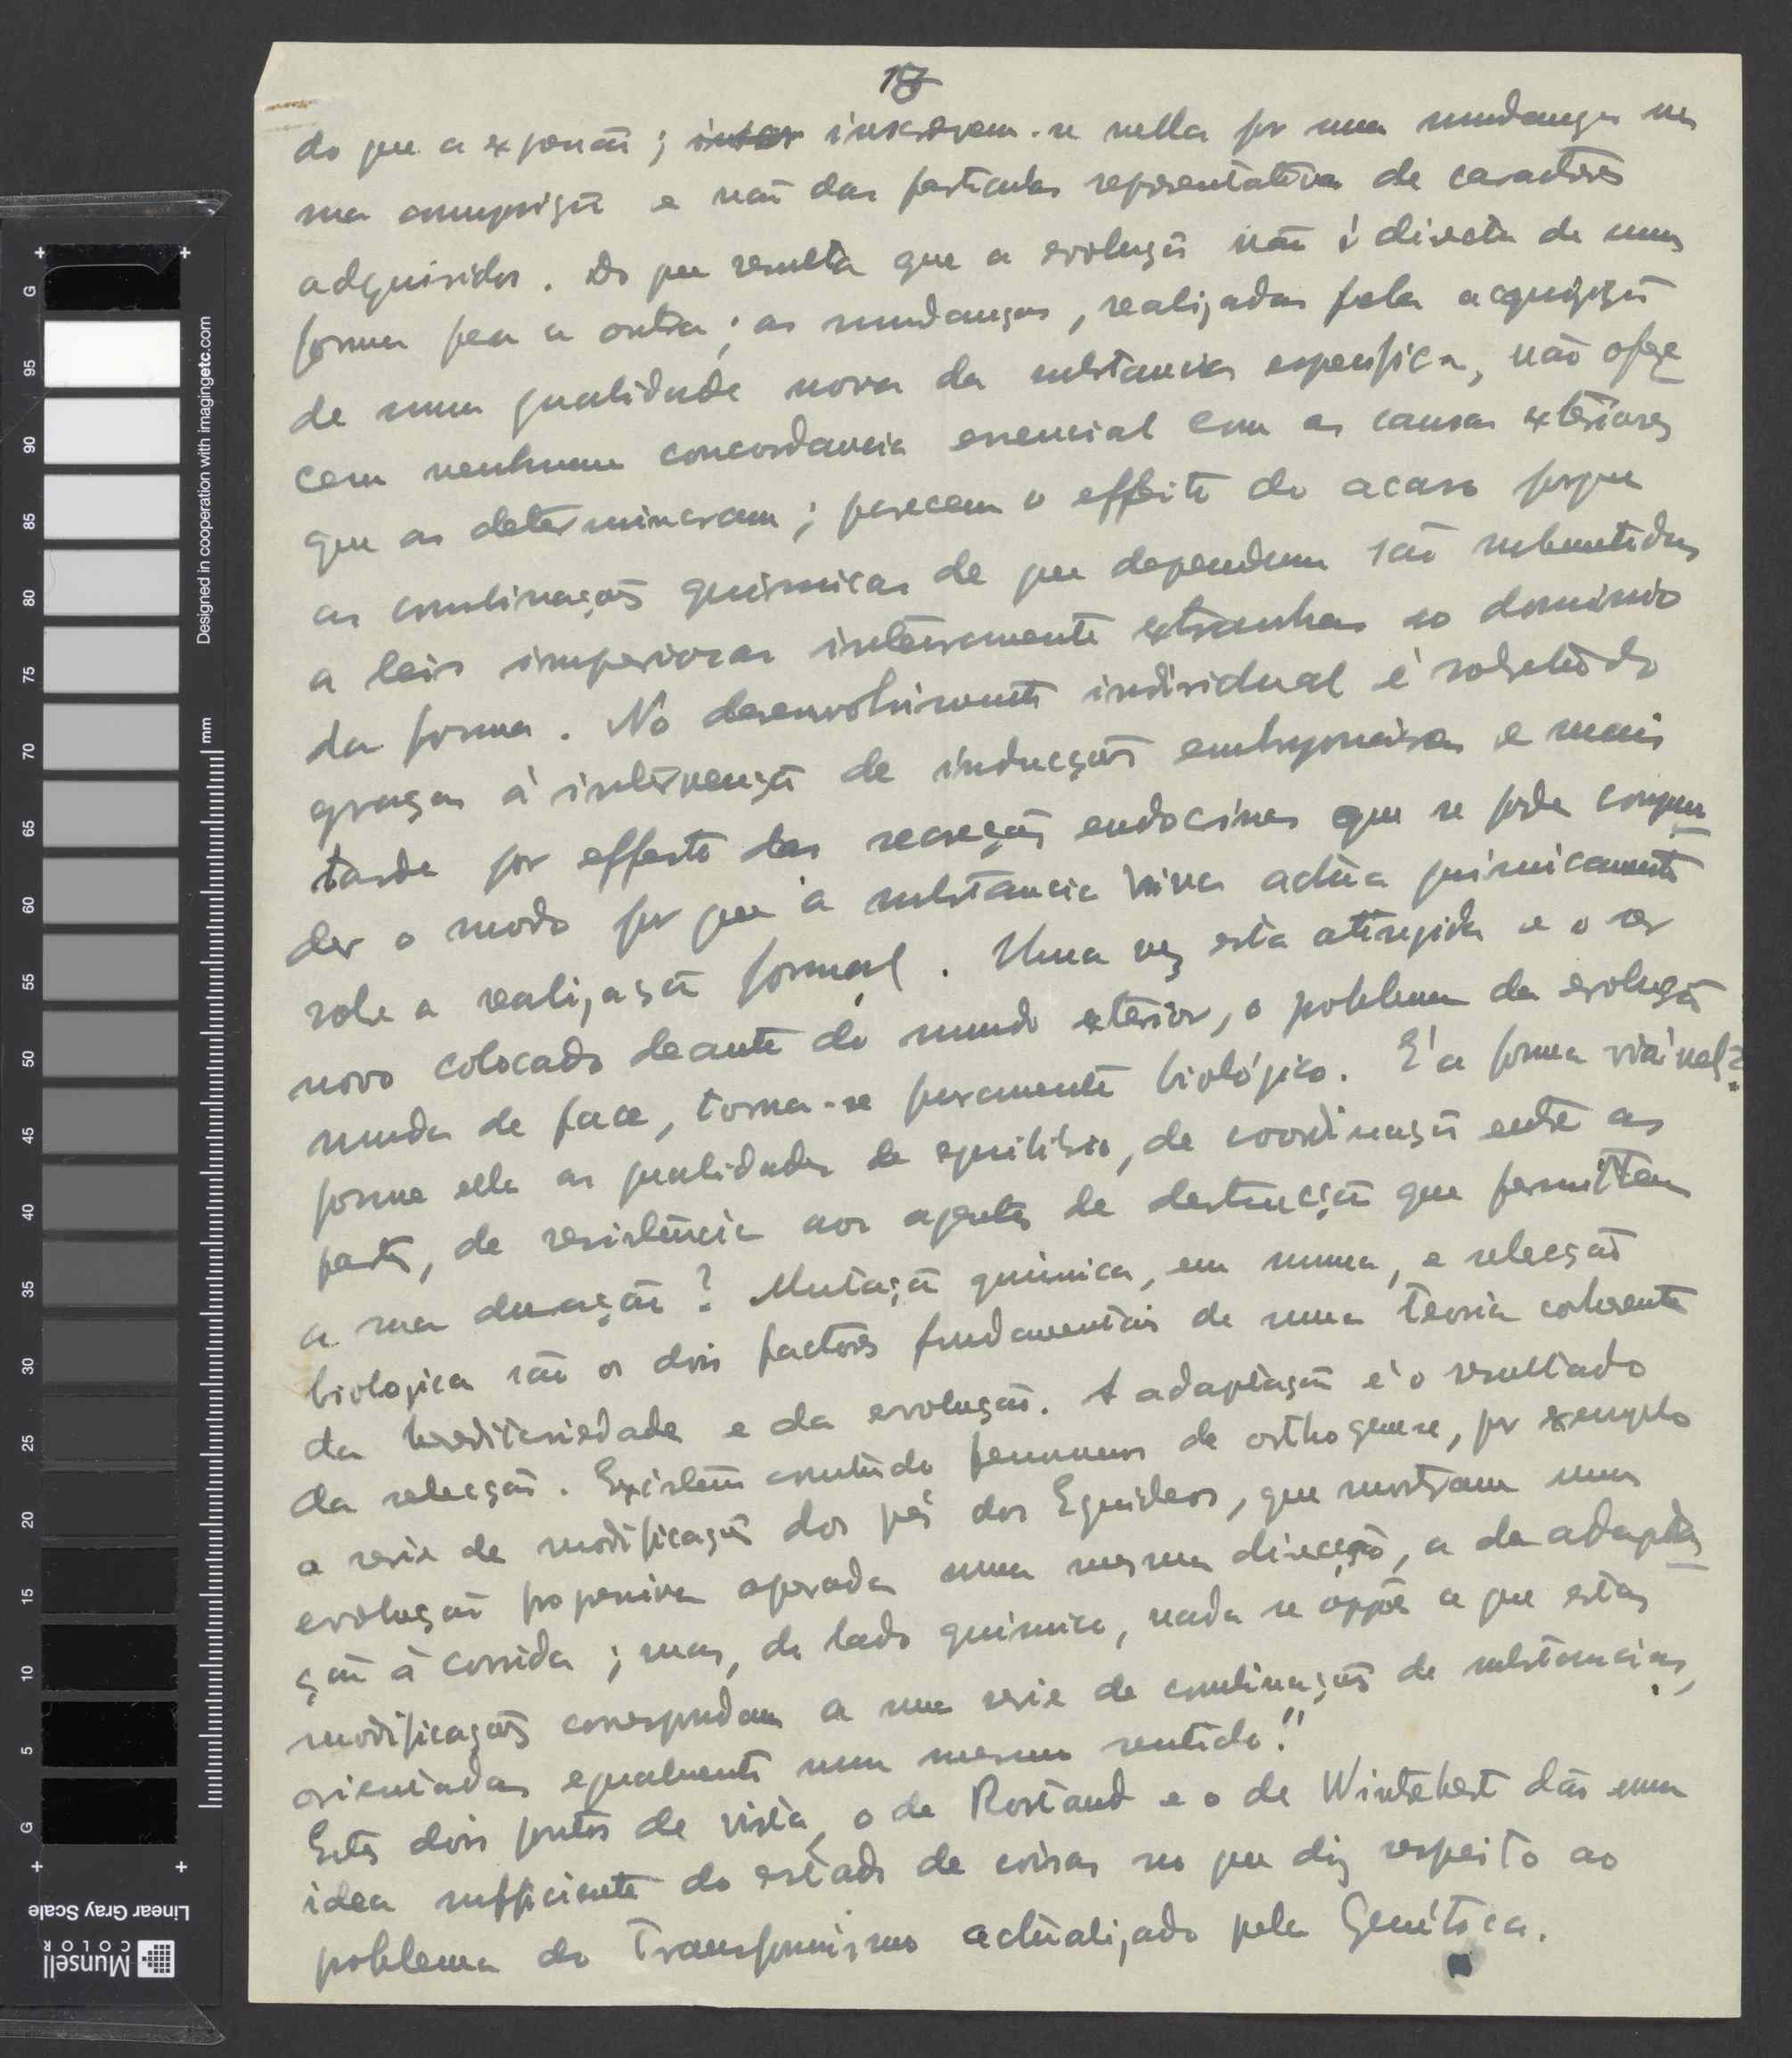 18
do que a expensão; inscrevem-se nella por uma mudança na
sua composição e não das particulas representativas de caractéres
adquiridos. Do que resulta que a evolução não é directa de uma
forma para a outra; as mudanças, realizadas pela acquisição
de uma qualidade nova da substancia especifica, não ofere
cem nenhuma concordancia essencial com as causas exteriores
que as determinaram; parecem o effeito do acaso porque
as combinações quimicas de que dependem são submetidas
a leis imperiosas inteiramente extranhas ao dominio
da forma. No desenvolvimento individual é sobretudo
graças á intervenção de inducções embryonarias e mais
tarde por effeito das secreções endocrinas que se pode compreen
der o modo por que a substancia viva actúa quimicamente
sobre a realização formal. Uma vez esta atingida e o ser
novo colocado deante do mundo exterior, o problema da evolução
muda de face, torna-se puramente biológico. É a forma viável?
possue ella as qualidades de equilibrio, de coordinação entre as
partes, de resistência aos agentes de destruição que permittem
a sua duração? Mutação quimica, em summa, e selecção
biologica são os dois factores fundamentais de uma teoria coherente
da hereditariedade e da evolução. A adaptação é o resultado
da selecção. Existem contudo fenomenos de orthogenese, por exemplo
a serie de modificações dos pés dos Equideos, que mostram uma
evolução progressiva operada numa mesma direcção, a da adapta
ção á corrida; mas, do lado quimico, nada se oppõe a que estas
modificações correspondam a uma serie de combinações de substancias,
orientadas egualmente num mesmo sentido."
Estes dois pontos de vista, o de Rostand e o de Wintrebert dão uma
idea sufficiente do estado de coisas no que diz respeito ao
problema do Transformismo actualizado pela Genética.
Designed in cooperation with imagingetc.com
mm
G
95
90
85
80
75
70
65
60
55
50
45
40
35
30
25
20
15
10
5
G
Linear Gray Scale
Munsell
COLOR